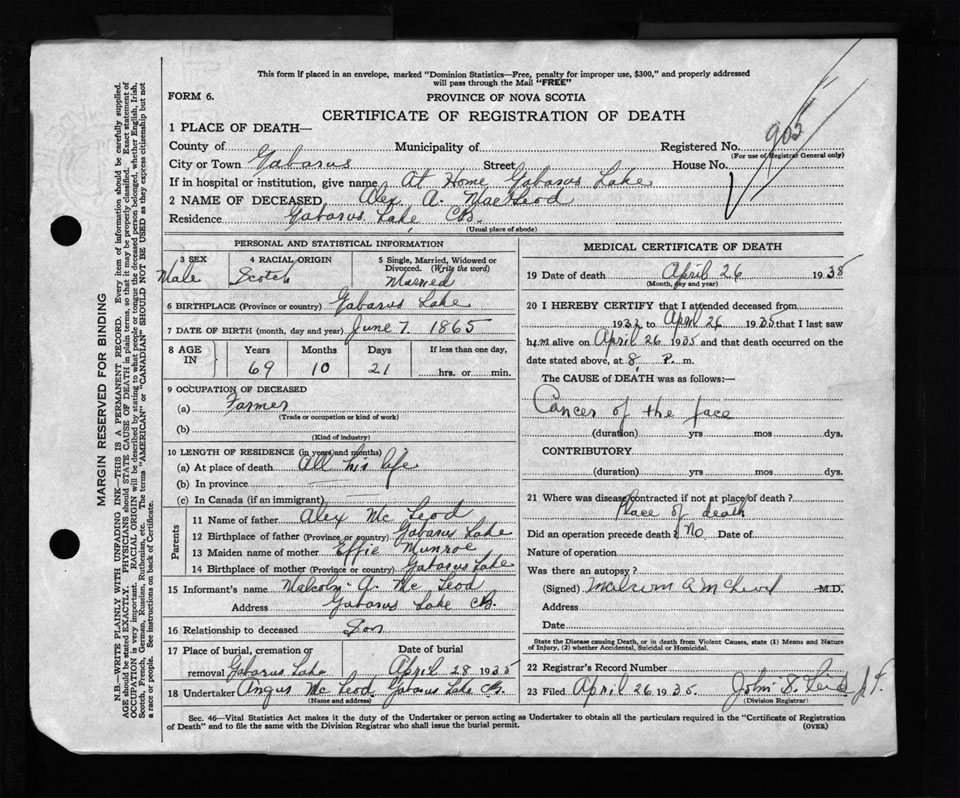 This form if placed in an envelope, marked "Dominion Statistics—Free, penalty for improper use, $300," and properly addressed
will pass through the Mail "FREE"
FORM 6.
PROVINCE OF NOVA SCOTIA
CERTIFICATE OF REGISTRATION OF DEATH
1 PLACE OF DEATH—
County of Municipality of Registered No. 905
(For use of Registrar General only)
City or Town Gabarus Street House No.
If in hospital or institution, give name At Home Gabarus Lake
2 NAME OF DECEASED Alex. A. MacLeod
Residence Gabarus Lake, CB.
(Usual place of abode)
PERSONAL AND STATISTICAL INFORMATION
3 SEX 4 RACIAL ORIGIN 5 Single, Married, Widowed or
Divorced. (Write the word)
Male Scotch Married
6 BIRTHPLACE (Province or country) Gabarus Lake
7 DATE OF BIRTH (month, day and year) June 7. 1865
8 AGE IN Years Months Days If less than one day,
69 10 21 hrs. or min.
9 OCCUPATION OF DECEASED
(a) Farmer
(Trade or occupation or kind of work)
(b)
(Kind of industry)
10 LENGTH OF RESIDENCE (in years and months)
(a) At place of death All his life
(b) In province
(c) In Canada (if an immigrant)
Parents
11 Name of father Alex Mc Leod
12 Birthplace of father (Province or country) Gabarus Lake
13 Maiden name of mother Effie Munroe
14 Birthplace of mother (Province or country) Gabarus Lake
15 Informant's name Malcolm A. Mc Leod
Address Gabarus Lake CB.
16 Relationship to deceased Son
17 Place of burial, cremation or Date of burial
removal Gabarus Lake April 28 1935
18 Undertaker Angus Mc Leod, Gabarus Lake CB.
(Name and address)
MEDICAL CERTIFICATE OF DEATH
19 Date of death April 26 1935
(Month, day and year)
20 I HEREBY CERTIFY that I attended deceased from
193 to April 26 1935 that I last saw
him alive on April 26 1935 and that death occurred on the
date stated above, at 8, P. m.
The CAUSE of DEATH was as follows:—
Cancer of the face
(duration) yrs mos dys.
CONTRIBUTORY
(duration) yrs mos dys.
21 Where was disease contracted if not at place of death?
Place of death
Did an operation precede death? No Date of
Nature of operation
Was there an autopsy?
(Signed) Malcolm A McLeod M.D.
Address
Date
State the Disease causing Death, or in death from Violent Causes, state (1) Means and Nature
of Injury, (2) whether Accidental, Suicidal or Homicidal.
22 Registrar's Record Number
23 Filed April 26 1935. John S.
(Division Registrar)
Sec. 46—Vital Statistics Act makes it the duty of the Undertaker or person acting as Undertaker to obtain all the particulars required in the "Certificate of Registration
of Death" and to file the same with the Division Registrar who shall issue the burial permit.
(OVER)
MARGIN RESERVED FOR BINDING
N.B.—WRITE PLAINLY WITH UNFADING INK—THIS IS A PERMANENT RECORD. Every item of information should be carefully supplied.
AGE should be stated EXACTLY. PHYSICIANS should STATE CAUSE OF DEATH in plain terms, so that it may be properly classified. Exact statement of
OCCUPATION is very important. RACIAL ORIGIN will be described by stating to what people or tongue the deceased person belonged, whether English, Irish,
Scotch, French, German, Russian, Ruthenian, etc. The terms "AMERICAN" or "CANADIAN" SHOULD NOT BE USED as they express citizenship but not
a race or people. See instructions on back of Certificate.